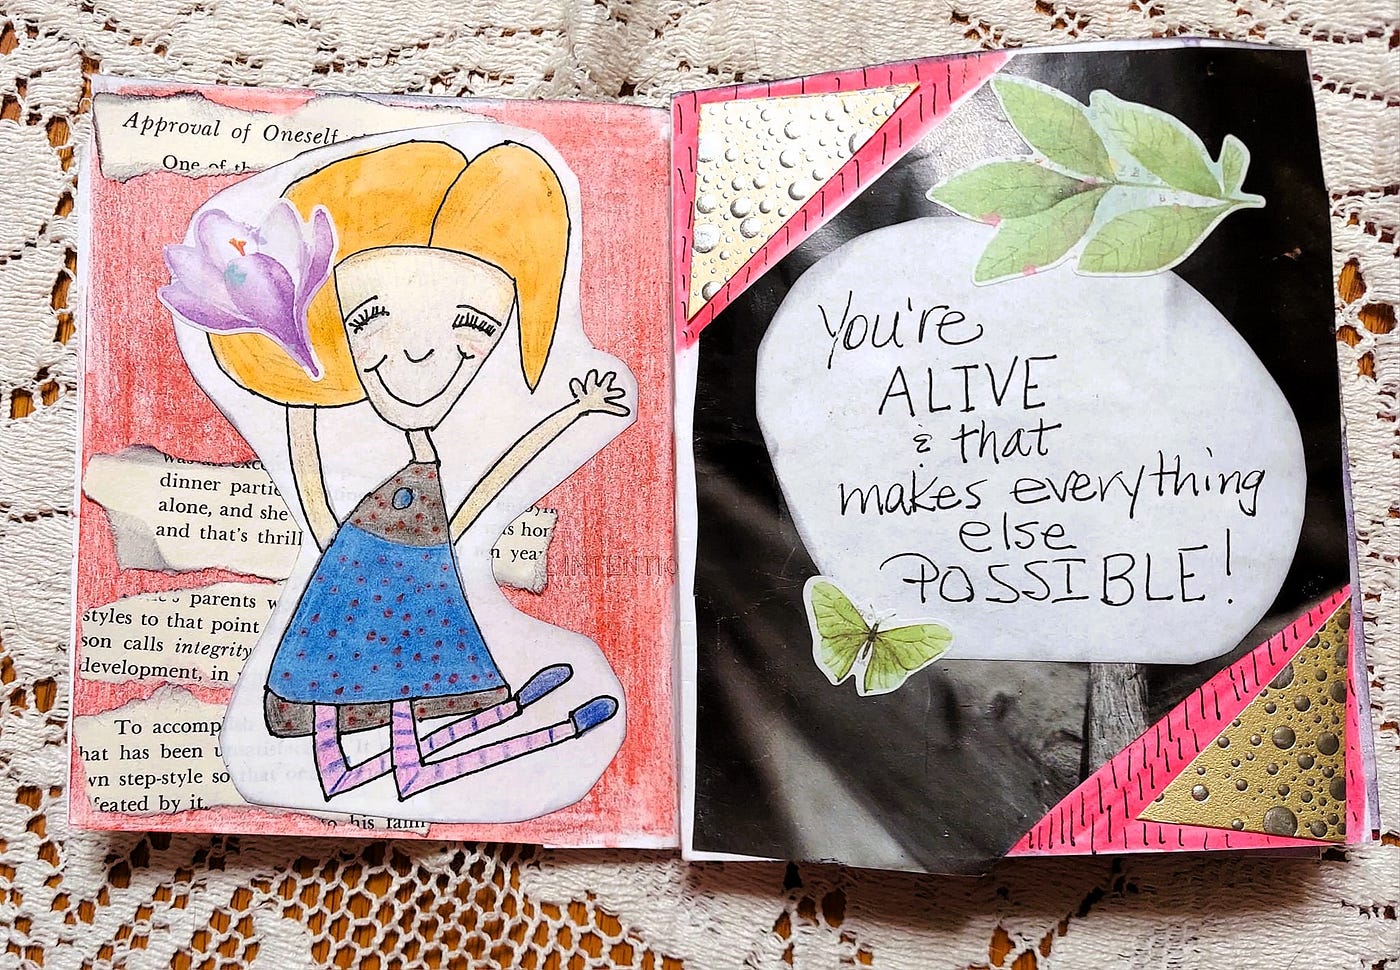 Approval of Oneself
One of th
dinner partie
alone, and she
and that's thrill
is hon
n year
INTENTIO
parents w
styles to that point
son calls integrity
development, in
To accompl
hat has been unsatisfac
wn step-style so that or
feated by it.
to his fami
You're
ALIVE
& that
makes everything
else
POSSIBLE!